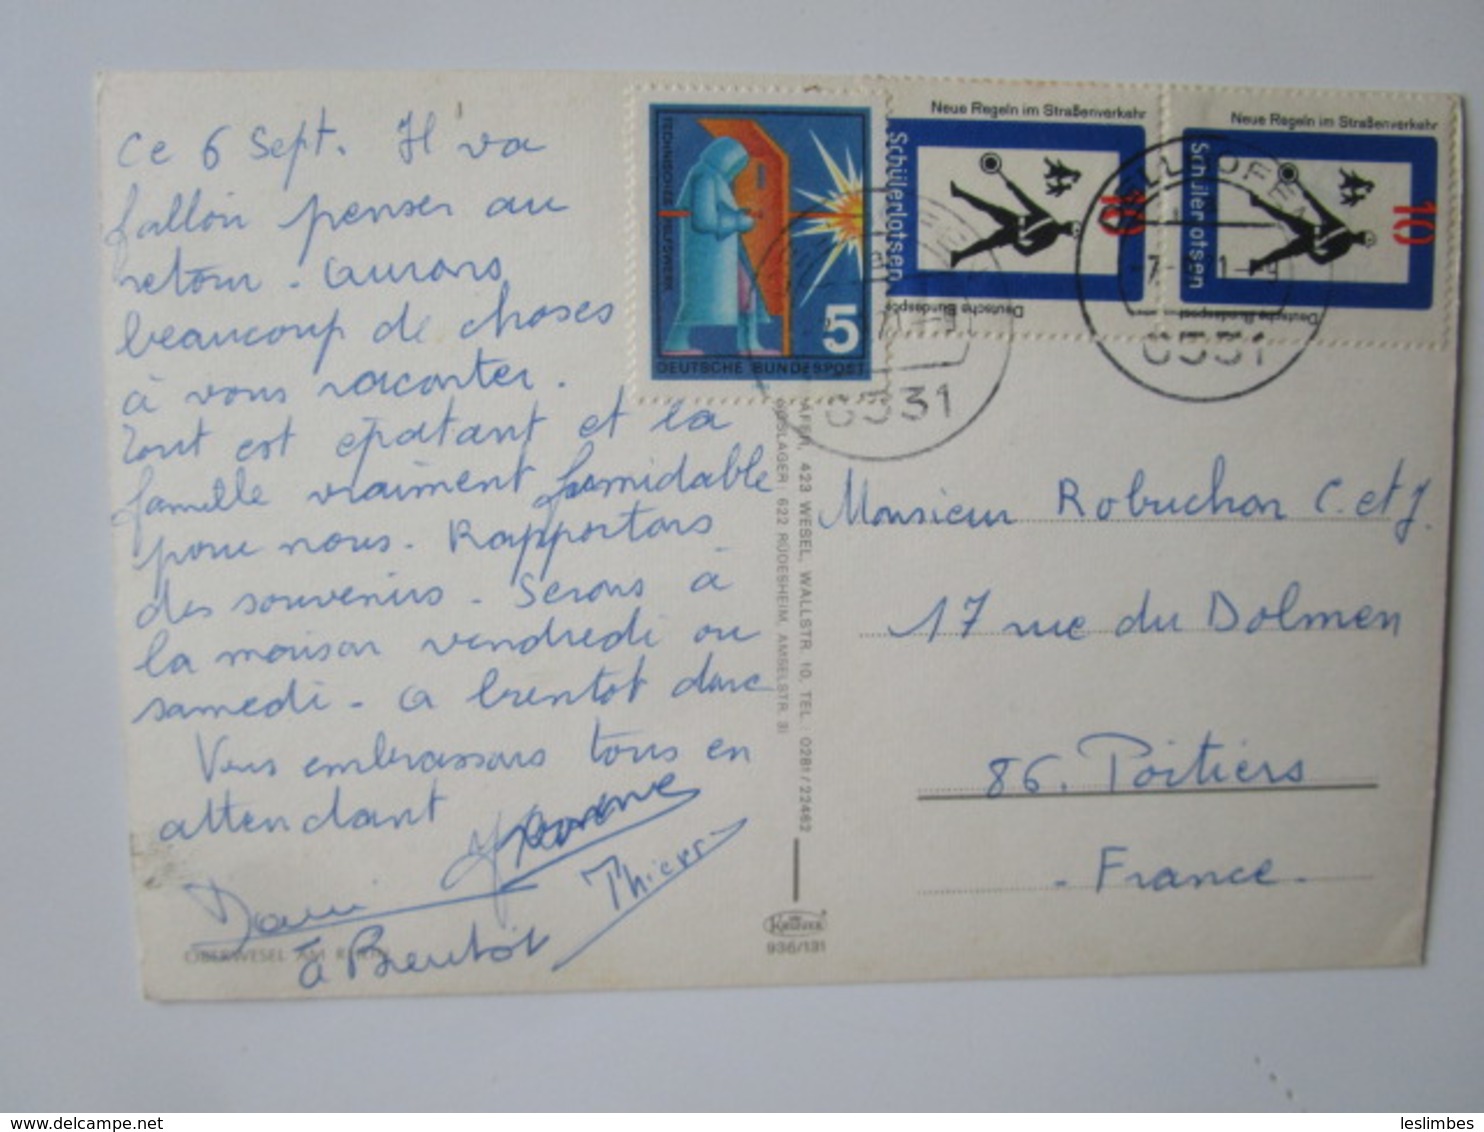 ce 6 Sept. Il va
falloir penser au
retour. Aurons
beaucoup de choses
à vous raconter.
Tout est épatant et la
famille vraiment formidable
pour nous. Rapportons
des souvenirs. Serons à
la maison vendredi ou
samedi. A bientôt donc
Vous embrassons tous en
attendant
Thierry
à Bientôt
OBERWESEL AM RHEIN
TECHNISCHES HILFSWERK
5
DEUTSCHE BUNDESPOST
Neue Regeln im Straßenverkehr
Schülerlotsen
10
Deutsche Bundespost
Neue Regeln im Straßenverkehr
Schülerlotsen
10
Deutsche Bundespost
5531
5531
423 WESEL, WALLSTR. 10, TEL. 0281/22462
622 RÜDESHEIM, AMSELSTR. 31
936/131
Monsieur Robuchon C. et J.
17 rue du Dolmen
86. Poitiers
- France -
leslimbes